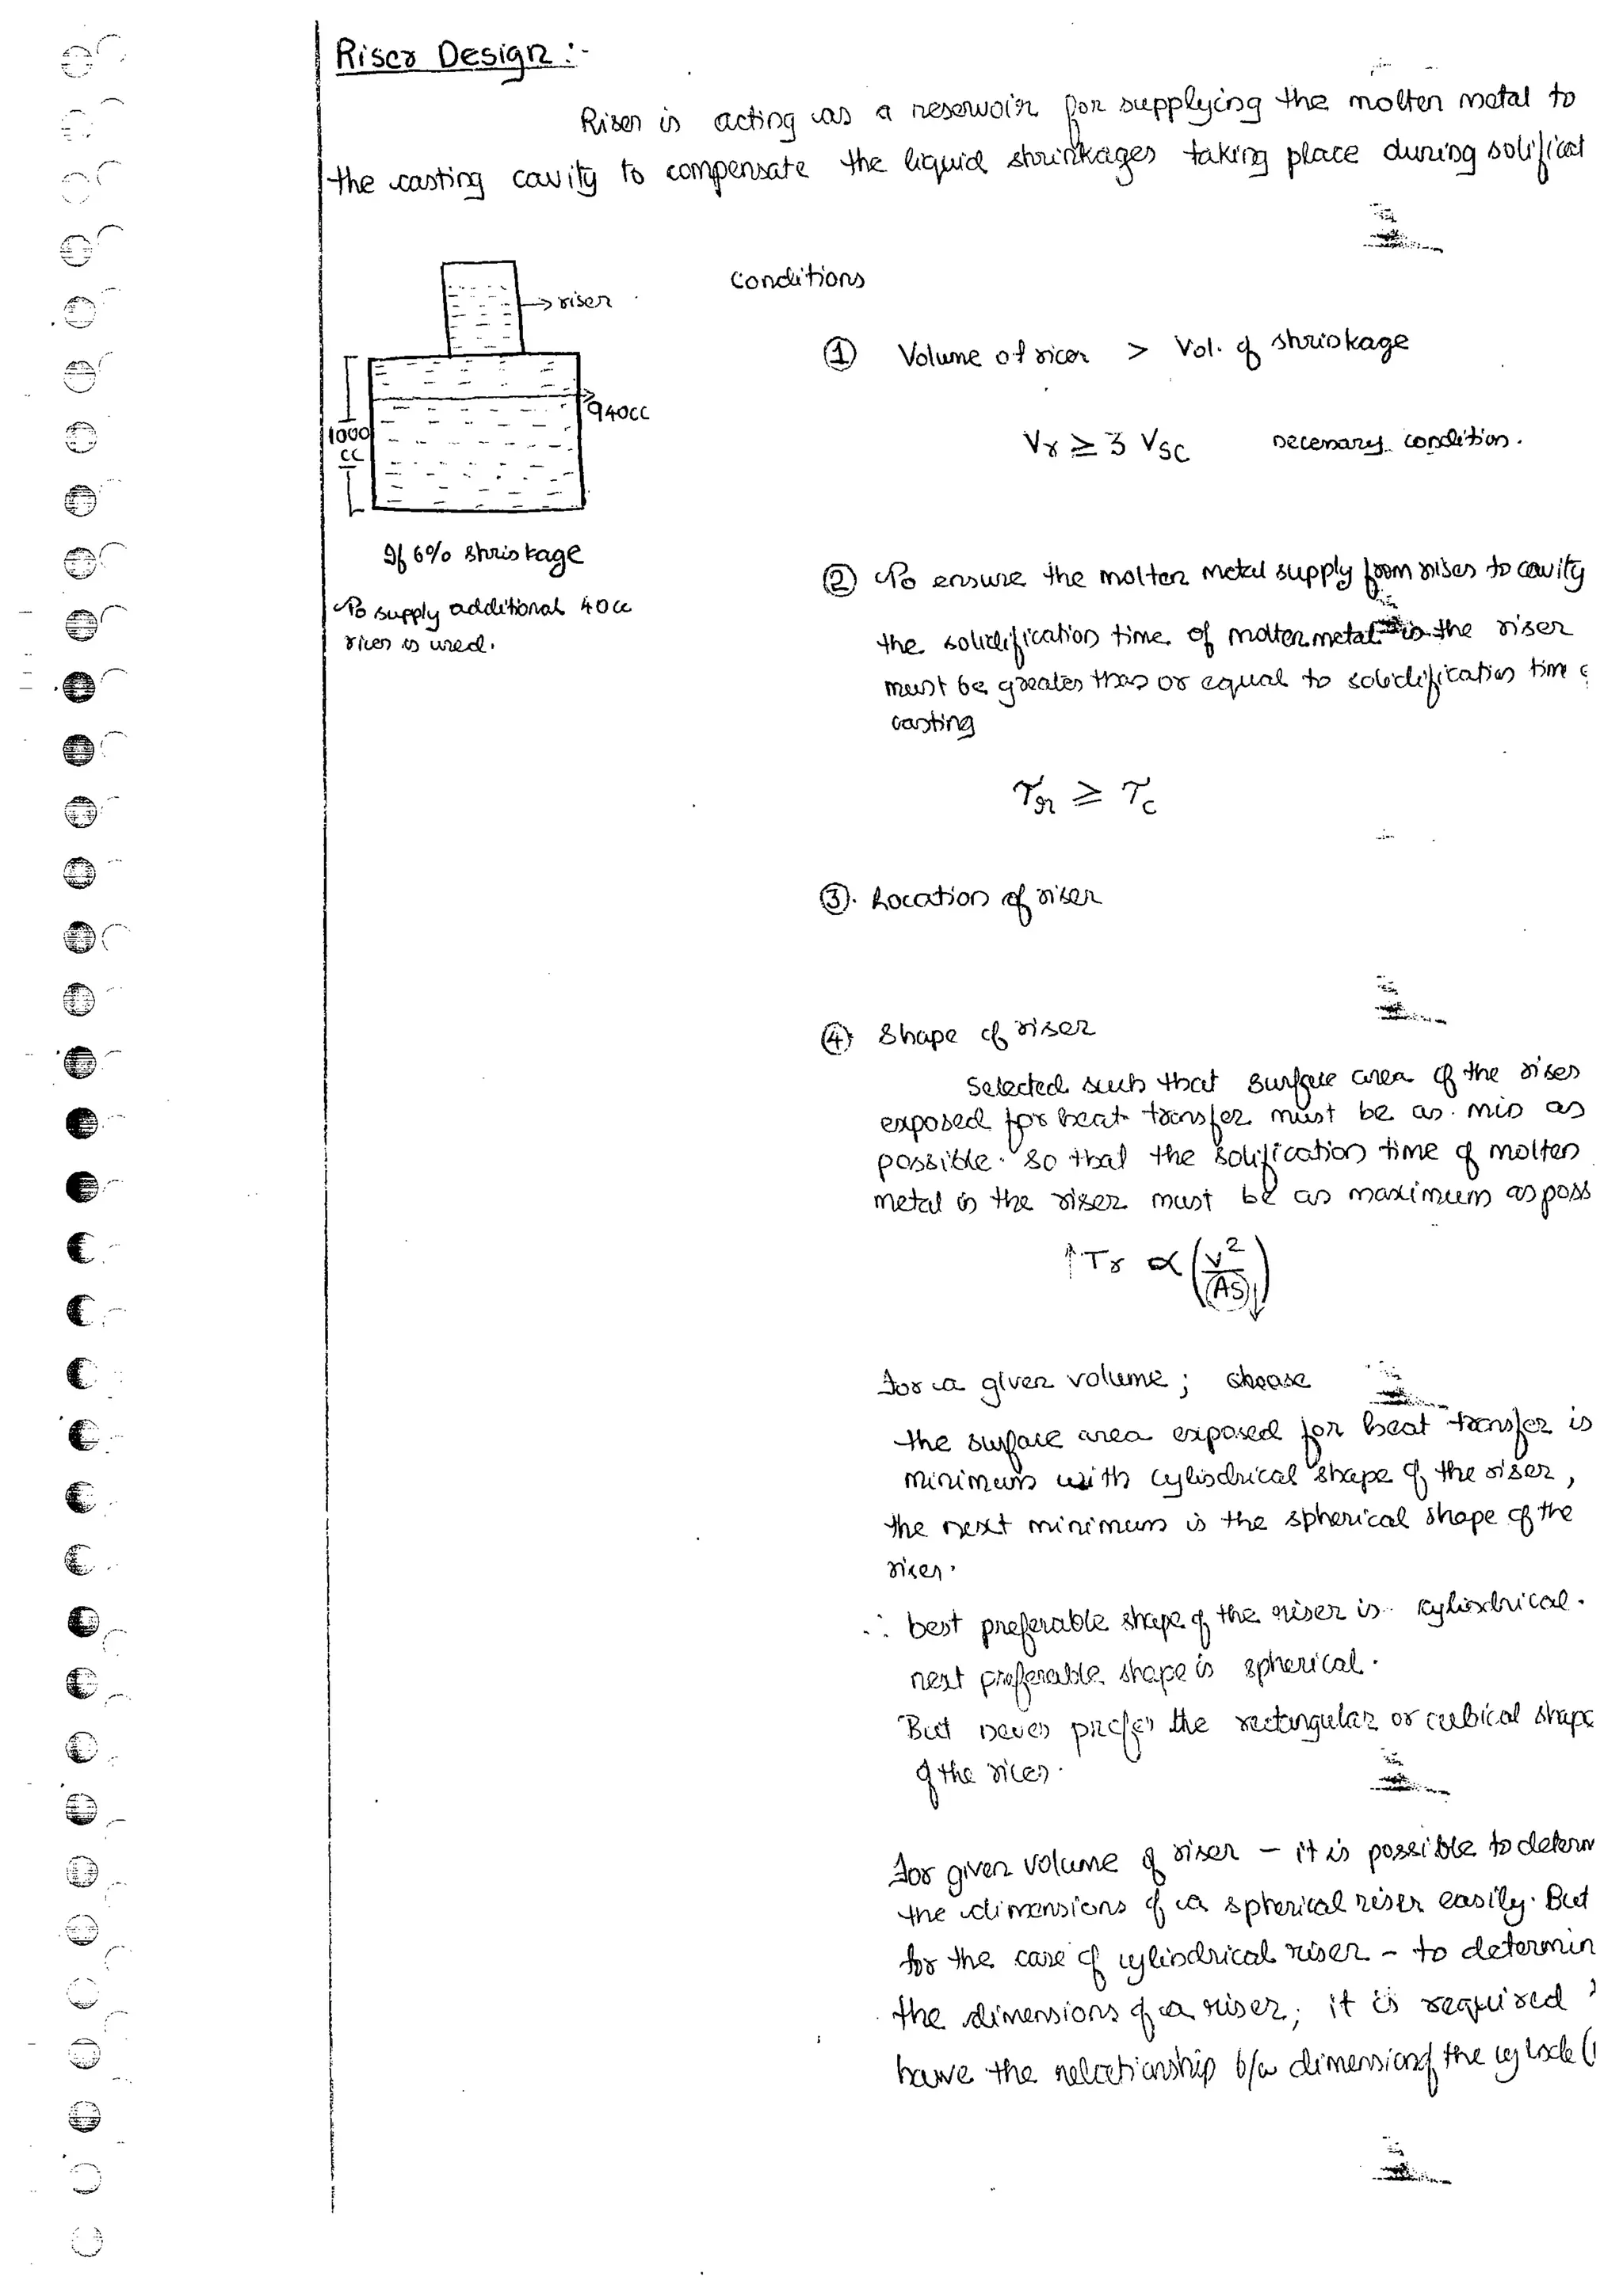 Riser Design :-
Riser is acting as a reservoir for supplying the molten metal to
the casting cavity to compensate the liquid shrinkages taking place during solificat
→ riser
940cc
1000
cc
If 6% shrinkage
To supply additional 40cc
riser is used.
Conditions
① Volume of riser > Vol. of shrinkage
Vr ≥ 3 Vsc necessary condition.
② To ensure the molten metal supply from riser to cavity
the solidification time of molten metal in the riser
must be greater than or equal to solidification time
casting
τr ≥ τc
③. Location of riser
④ Shape of riser
Selected such that surface area of the riser
exposed for heat transfer must be as min as
possible. So that the solification time of molten
metal in the riser must be as maximum as poss
↑Tr ∝ (V/As↓)²
For a given volume; choose
the surface area exposed for heat transfer is
minimum with cylindrical shape of the riser,
the next minimum is the spherical shape of the
riser.
∴ best preferable shape of the riser is cylindrical.
next preferable shape is spherical.
But never prefer the rectangular or cubical shape
of the riser.
For given volume of riser – it is possible to determ
the dimensions of a spherical riser easily. But
for the case of cylindrical riser – to determin
the dimensions of a riser, it is required
have the relationship b/w dimensions of the cylinde (